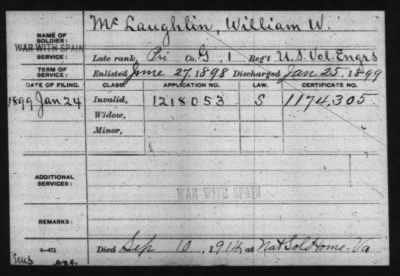 NAME OF SOLDIER: Mc Laughlin, William W.
WAR WITH SPAIN
SERVICE: Late rank, Pri Co. G, 1 Reg't U.S. Vol. Engrs
TERM OF SERVICE: Enlisted June 27, 1898 Discharged Jan. 25, 1899
DATE OF FILING. CLASS. APPLICATION NO. LAW. CERTIFICATE NO.
1899 Jan 24 Invalid, 1218053 S 1174,305
Widow,
Minor,
ADDITIONAL SERVICES:
WAR WITH SPAIN
REMARKS:
Died Sep 10, 1914, at Nat Sol Home Va